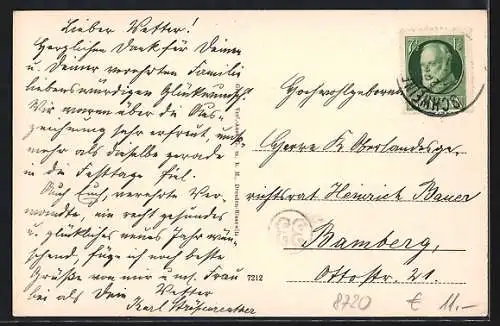 Lieber Vetter!
Herzlichen Dank für Deinen
u. Deiner verehrten Familie
liebenswürdigen Glückwunsch!
Wir waren über die Aus-
zeichnung sehr erfreut, um so
mehr als dieselbe gerade
in die Festtage fiel.
Auch Euch, verehrte Ver-
wandte, ein recht gesundes
u. glückliches neues Jahr wün-
schend, füge ich noch beste
Grüße von mir u. ms. Frau
bei als Dein Vetter
Karl
7212
SCHWEINF
Hochwohlgeboren
Herrn K Oberlandesge-
richtsrat Heinrich Bauer
Bamberg,
Ottostr. 21.
8720 € 11.-